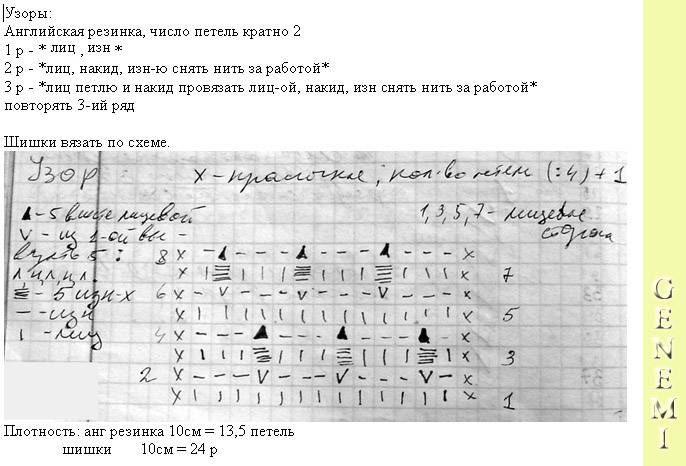 Узоры:
Английская резинка, число петель кратно 2
1 р - * лиц , изн *
2 р - *лиц, накид, изн-ю снять нить за работой*
3 р - *лиц петлю и накид провязать лиц-ой, накид, изн снять нить за работой*
повторять 3-ий ряд
Шишки вязать по схеме.
Узор x - кромочные, кол-во петель (:4) + 1
▲ - 5 вместе лицевой 1, 3, 5, 7 - лицевые
V - из 1-ой вы - сторона
вязать 5 : 8 x - ▲ - - - ▲ - - - ▲ - - - x
л и л и л x I ≡ I I I ≡ I I I ≡ I I I x 7
≡ - 5 изн-х 6 x - V - - - V - - - V - - - x
— - изн x I I I I I I I I I I I I I x 5
I - лиц 4 x - - - ▲ - - - ▲ - - - ▲ - x
x I I I ≡ I I I ≡ I I I ≡ I x 3
2 x - - - V - - - V - - - V - x
x I I I I I I I I I I I I I x 1
Плотность: анг резинка 10см = 13,5 петель
шишки 10см = 24 р
GENEMI